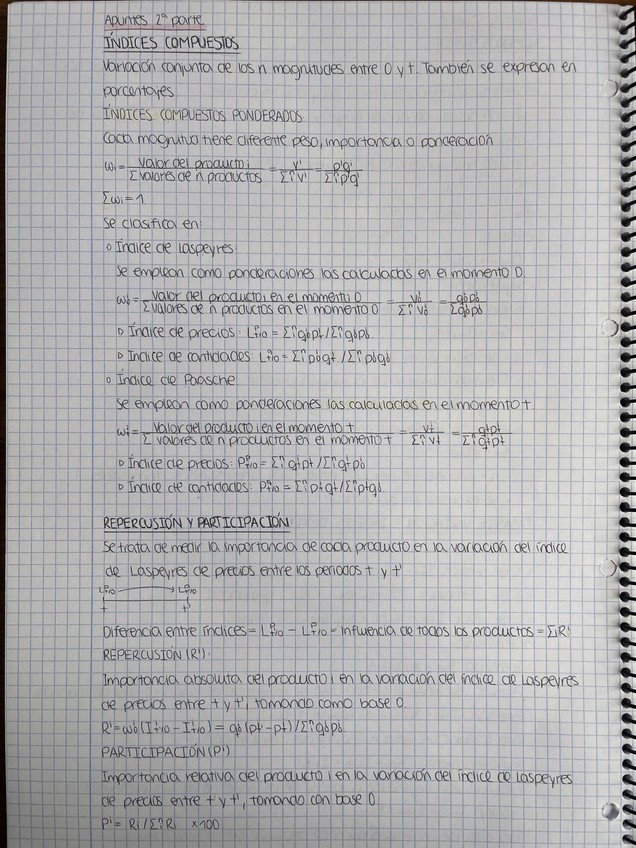 Apuntes 2ª parte
ÍNDICES COMPUESTOS
Variación conjunta de los n magnitudes entre 0 y t. También se expresan en
porcentajes
ÍNDICES COMPUESTOS PONDERADOS
Cada magnitud tiene diferente peso, importancia o ponderación
ωi = valor del producto i / Σ valores de n productos = vⁱ / Σⁿᵢ vⁱ = pⁱqⁱ / Σⁿᵢ pⁱqⁱ
Σωi = 1
Se clasifica en:
o Índice de Laspeyres
Se emplean como ponderaciones las calculadas en el momento 0.
ωⁱ₀ = valor del producto i en el momento 0 / Σ valores de n productos en el momento 0 = vⁱ₀ / Σⁿᵢ vⁱ₀ = qⁱ₀pⁱ₀ / Σqⁱ₀pⁱ₀
▷ Índice de precios: Lᵖt/0 = Σⁿᵢ qⁱ₀pⁱt / Σⁿᵢ qⁱ₀pⁱ₀
▷ Índice de cantidades: Lᵠt/0 = Σⁿᵢ pⁱ₀qⁱt / Σⁿᵢ pⁱ₀qⁱ₀
o Índice de Paasche.
Se emplean como ponderaciones las calculadas en el momento t.
ωⁱt = valor del producto i en el momento t / Σ valores de n productos en el momento t = vⁱt / Σⁿᵢ vⁱt = qⁱtpⁱt / Σⁿᵢ qⁱtpⁱt
▷ Índice de precios: Pᵖt/0 = Σⁿᵢ qⁱtpⁱt / Σⁿᵢ qⁱtpⁱ₀
▷ Índice de cantidades: Pᵠt/0 = Σⁿᵢ pⁱtqⁱt / Σⁿᵢ pⁱtqⁱ₀
REPERCUSIÓN Y PARTICIPACIÓN
Se trata de medir la importancia de cada producto en la variación del índice
de Laspeyres de precios entre los periodos t y t'
Lᵖt/0 → Lᵖt'/0
t t'
Diferencia entre índices = Lᵖt'/0 − Lᵖt/0 = Influencia de todos los productos = ΣᵢRⁱ
REPERCUSIÓN (Rⁱ).
Importancia absoluta del producto i en la variación del índice de Laspeyres
de precios entre t y t', tomando como base 0.
Rⁱ = ωⁱ₀ (Iⁱt'/0 − Iⁱt/0) = qⁱ₀ (pⁱt' − pⁱt) / Σⁿᵢ qⁱ₀pⁱ₀
PARTICIPACIÓN (Pⁱ)
Importancia relativa del producto i en la variación del índice de Laspeyres
de precios entre t y t', tomando con base 0
Pⁱ = Ri / Σⁿᵢ Ri ×100